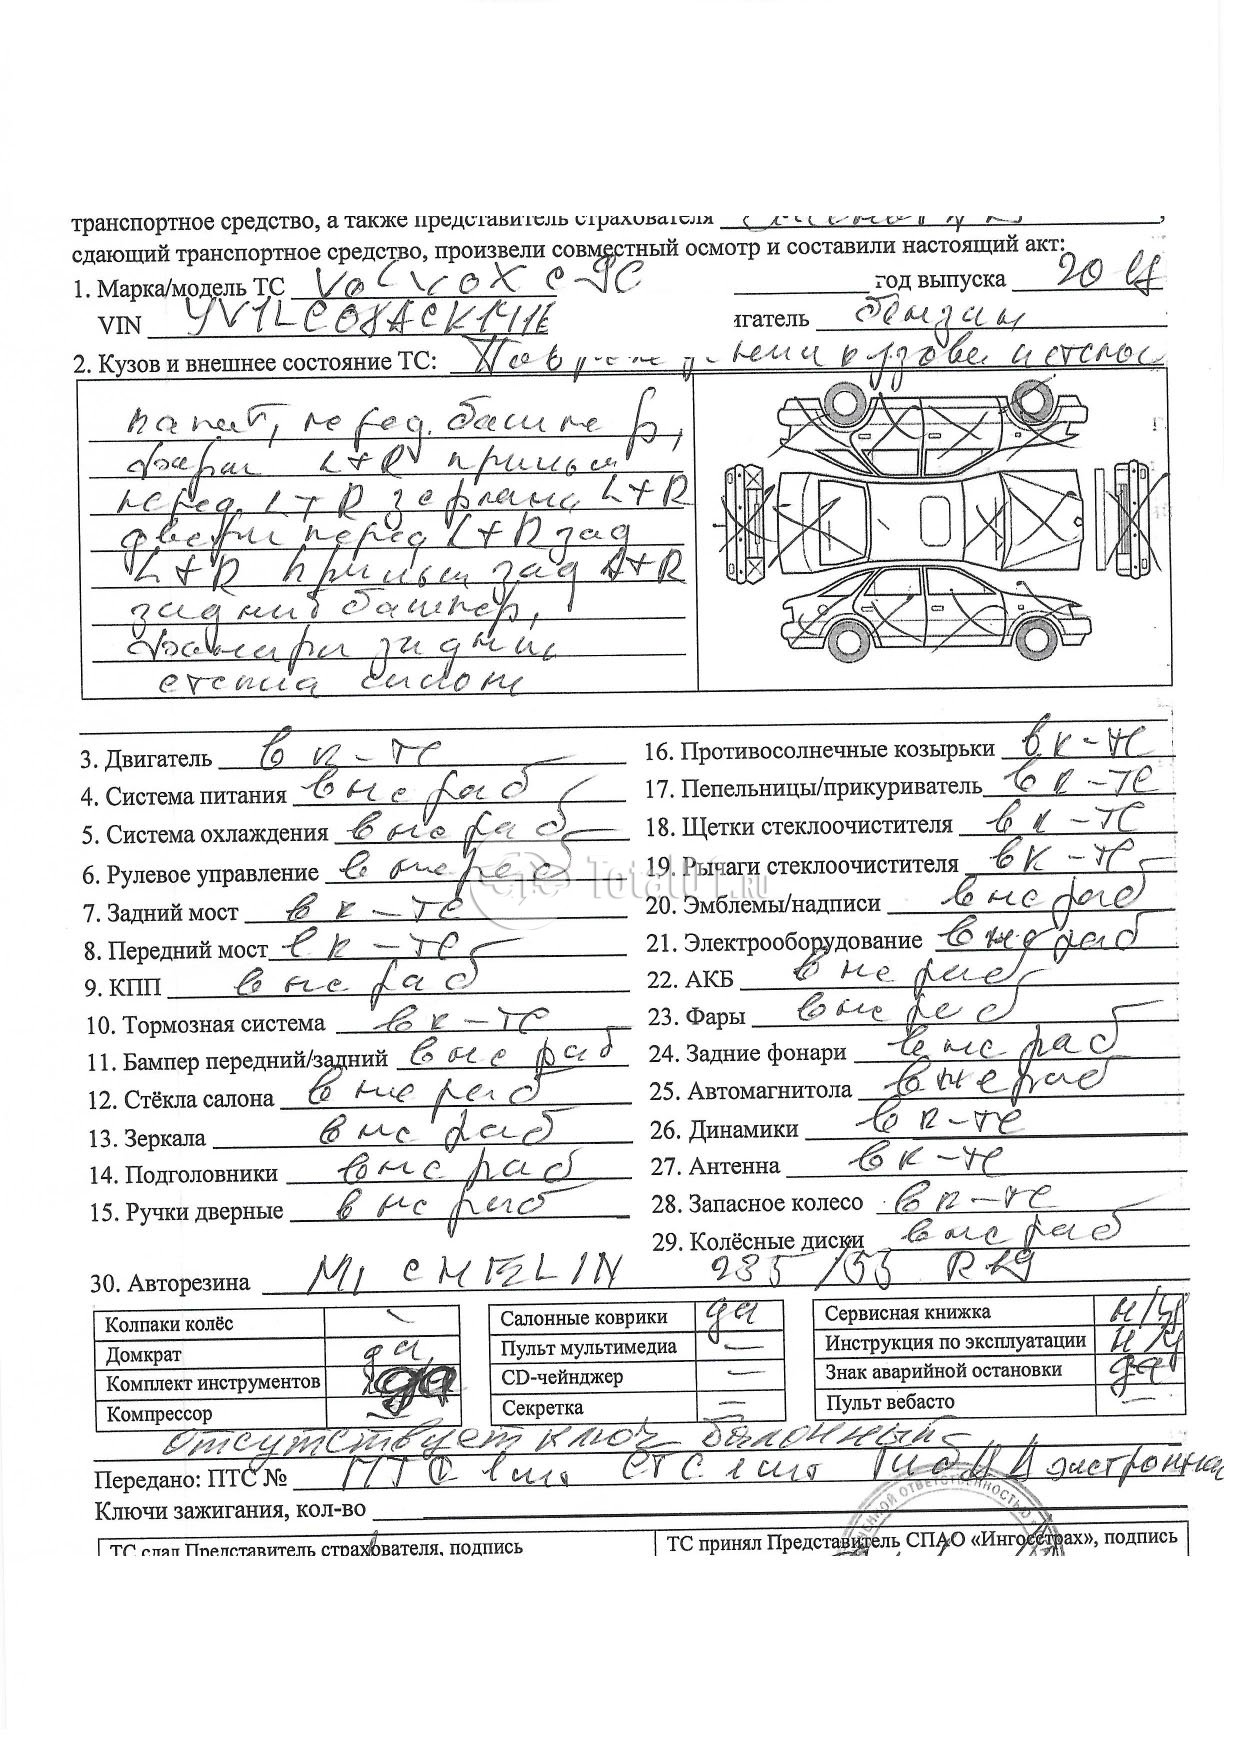 транспортное средство, а также представитель страхователя
сдающий транспортное средство, произвели совместный осмотр и составили настоящий акт:
1. Марка/модель ТС VOLVO XC-90 год выпуска 2019
VIN игатель бензин
2. Кузов и внешнее состояние ТС: Повреждения кузова и стекла
капот, перед. бампер,
фары L+R крылья
перед. L+R зеркала L+R
двери перед L+R зад
L+R крылья зад L+R
задний бампер,
фонари задние
стекла салона
3. Двигатель в к-те 16. Противосолнечные козырьки в к-те
4. Система питания в не раб 17. Пепельницы/прикуриватель в к-те
5. Система охлаждения в не раб 18. Щетки стеклоочистителя в к-те
6. Рулевое управление в не раб 19. Рычаги стеклоочистителя в к-те
Total01.ru
7. Задний мост в к-те 20. Эмблемы/надписи в не раб
8. Передний мост в к-те 21. Электрооборудование в не раб
9. КПП в не раб 22. АКБ в не раб
10. Тормозная система в к-те 23. Фары в не раб
11. Бампер передний/задний в не раб 24. Задние фонари в не раб
12. Стёкла салона в не раб 25. Автомагнитола в не раб
13. Зеркала в не раб 26. Динамики в к-те
14. Подголовники в не раб 27. Антенна в к-те
15. Ручки дверные в не раб 28. Запасное колесо в к-те
29. Колёсные диски в не раб
30. Авторезина MICHELIN 235/55 R19
Колпаки колёс – Салонные коврики да Сервисная книжка н/у
Домкрат да Пульт мультимедиа – Инструкция по эксплуатации н/у
Комплект инструментов да CD-чейнджер – Знак аварийной остановки да
Компрессор – Секретка – Пульт вебасто –
отсутствует ключ балонный
Передано: ПТС № ПТС СТС электронная
Ключи зажигания, кол-во
ТС сдал Представитель страхователя, подпись ТС принял Представитель СПАО «Ингосстрах», подпись
ОТВЕТСТВЕННОСТЬЮ